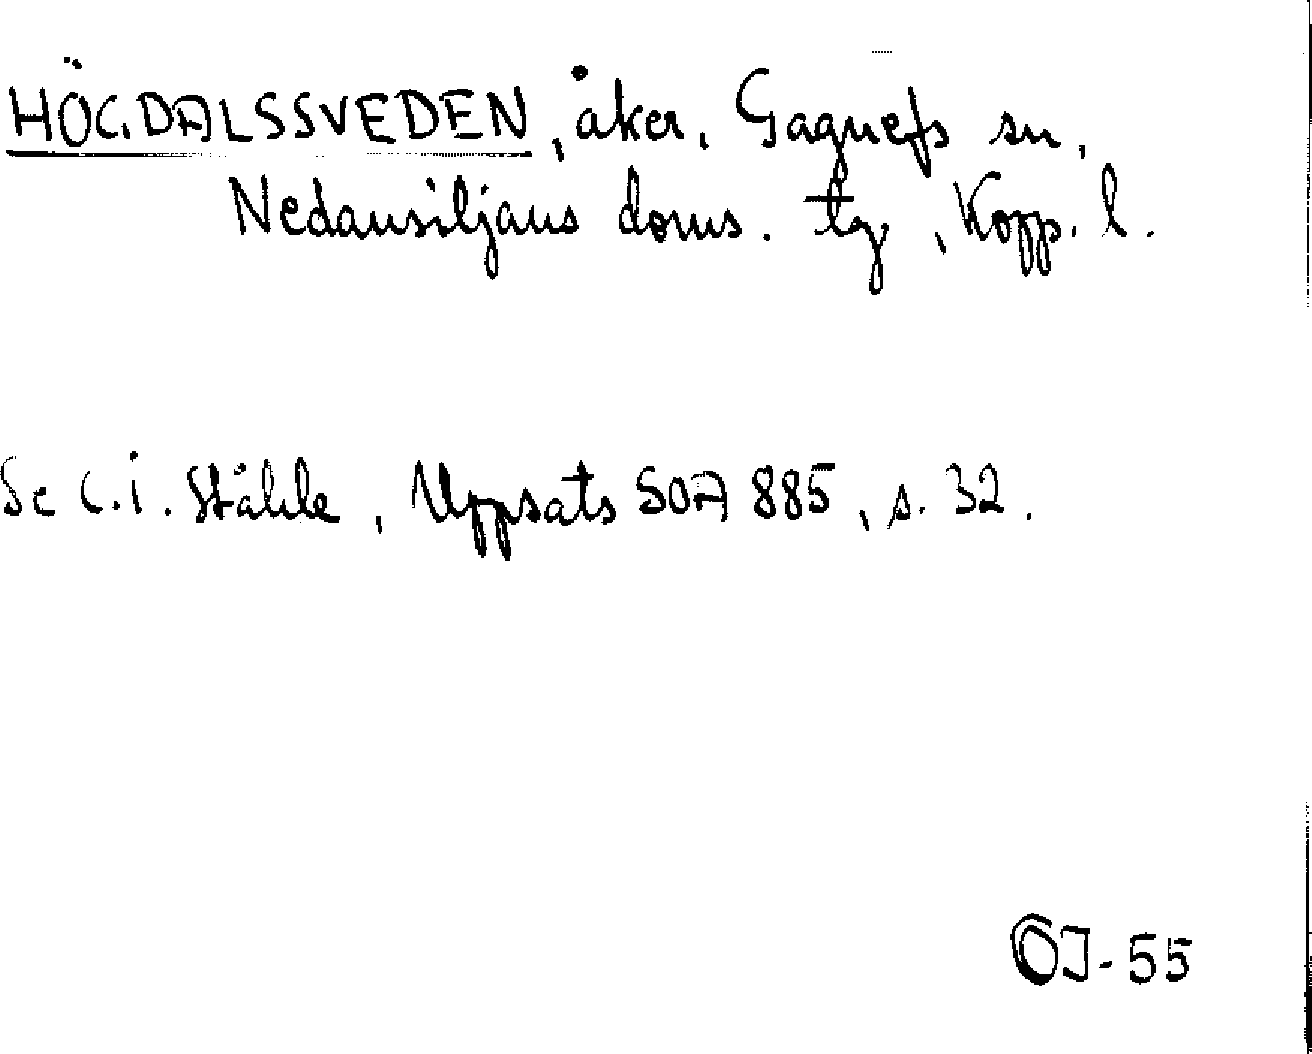 HÖGDALSSVEDEN, åker, Gagnefs sn,
Nedansiljans doms. tg, Kopp. l.
Se C.I. Ståhle, Uppsats SOA 885, s. 32.
OJ-55